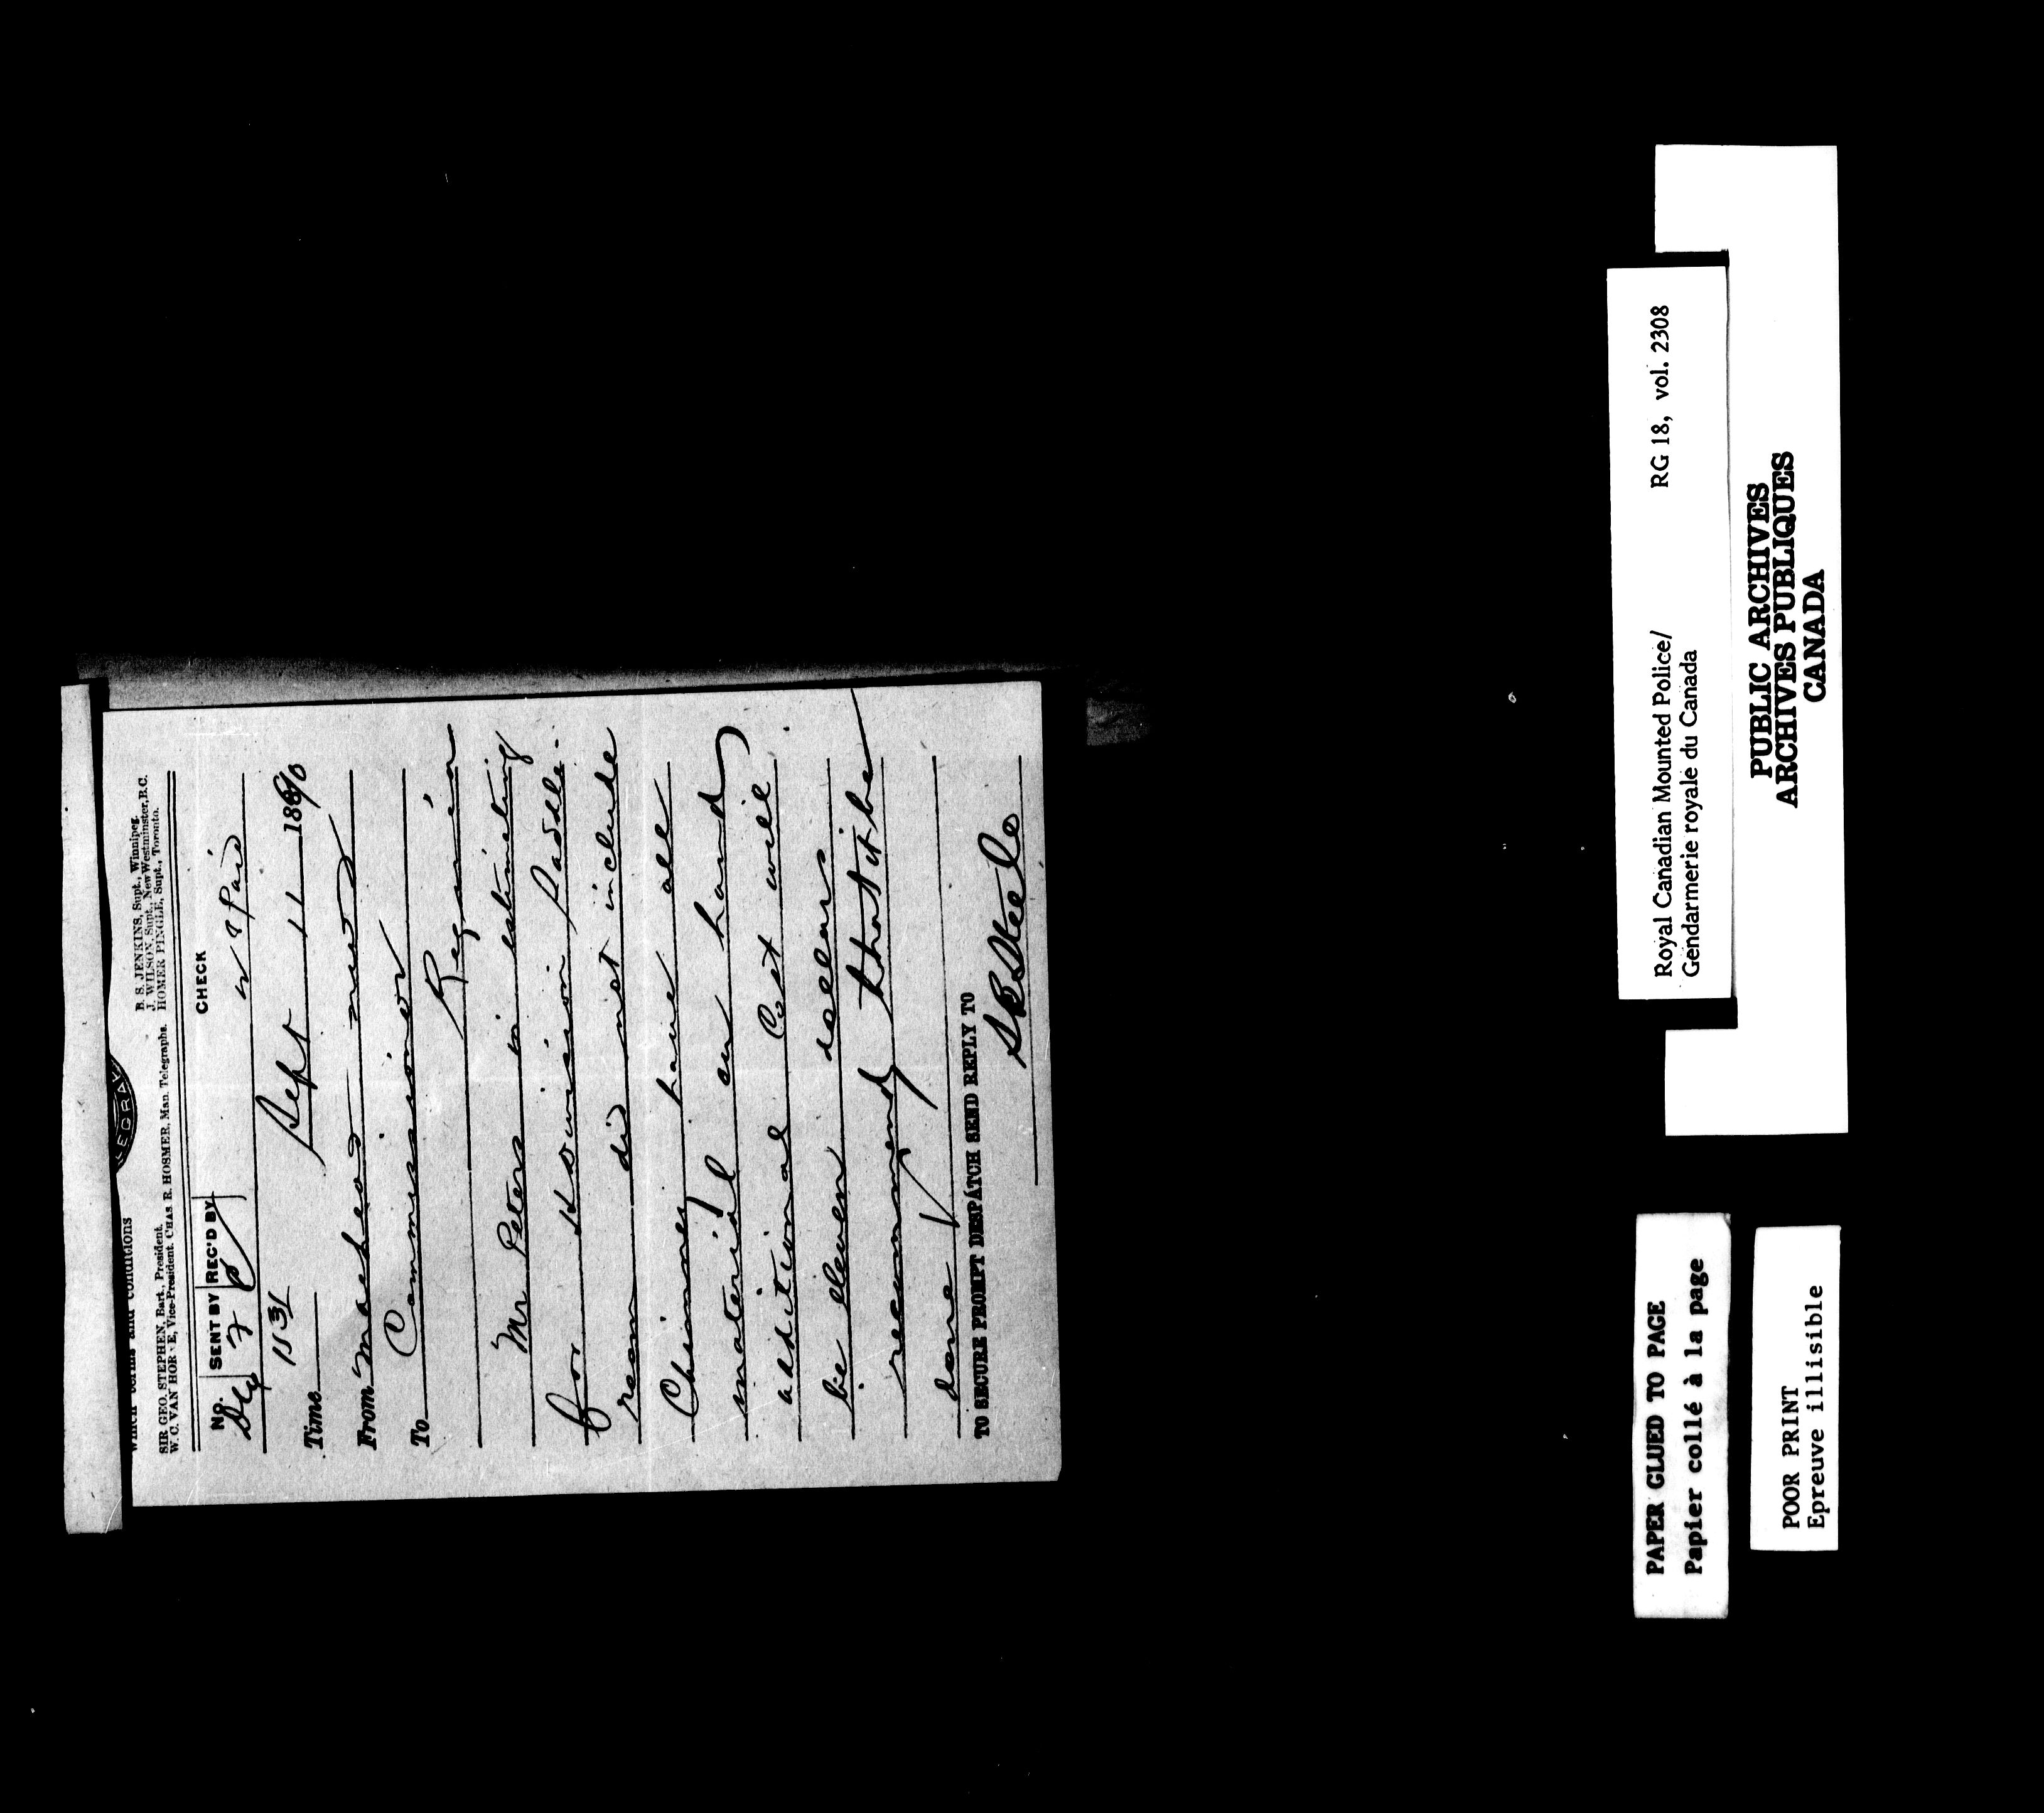 which terms and conditions
SIR GEO. STEPHEN, Bart., President.
W. C. VAN HORNE, Vice-President. CHAS. R. HOSMER, Man. Telegraphs.
B. S. JENKINS, Supt., Winnipeg.
J. WILSON, Supt., New Westminster, B.C.
HOMER PINGLE, Supt., Toronto.
No. SENT BY REC'D BY CHECK
Paid
Time Sept 11 1890
From Macleod nwt
To Commissioner
Regina
Mr Peters in estimating
for Division Saddle
room did not include
Chimney have all
material on hand
additional Cost will
be eleven dollars
recommend that it be
done
TO SECURE PROMPT DESPATCH SEND REPLY TO
S B Steele
Royal Canadian Mounted Police/ RG 18, vol. 2308
Gendarmerie royale du Canada
PUBLIC ARCHIVES
ARCHIVES PUBLIQUES
CANADA
PAPER GLUED TO PAGE
Papier collé à la page
POOR PRINT
Epreuve illisible